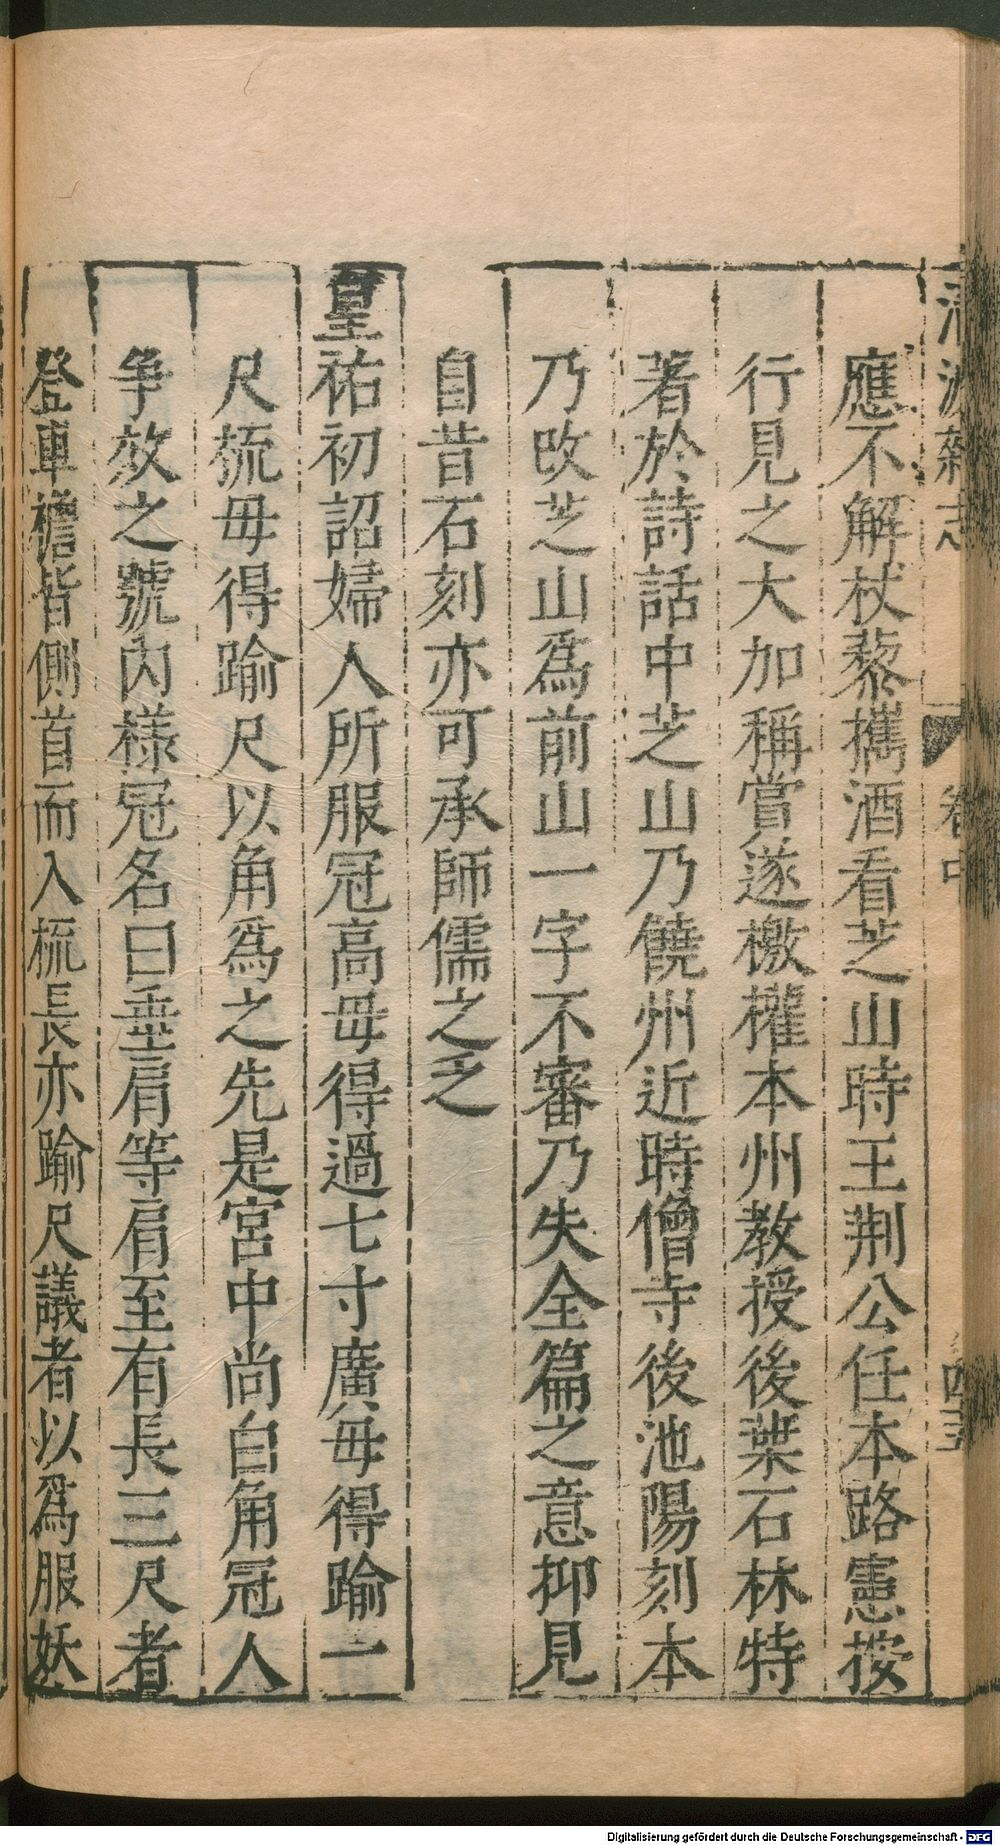 清波雜志
卷中
四五
應不解杖藜攜酒看芝山時王荆公任本路憲按
行見之大加稱賞遂檄權本州教授後葉石林特
著於詩話中芝山乃饒州近時僧寺後池陽刻本
乃改芝山爲前山一字不審乃失全篇之意抑見
自昔石刻亦可承師儒之乏
皇祐初詔婦人所服冠高毋得過七寸廣毋得踰一
尺梳毋得踰尺以角爲之先是宮中尚白角冠人
争效之號内樣冠名曰垂肩等肩至有長三尺者
登車檐皆側首而入梳長亦踰尺議者以爲服妖
Digitalisierung gefördert durch die Deutsche Forschungsgemeinschaft - DFG